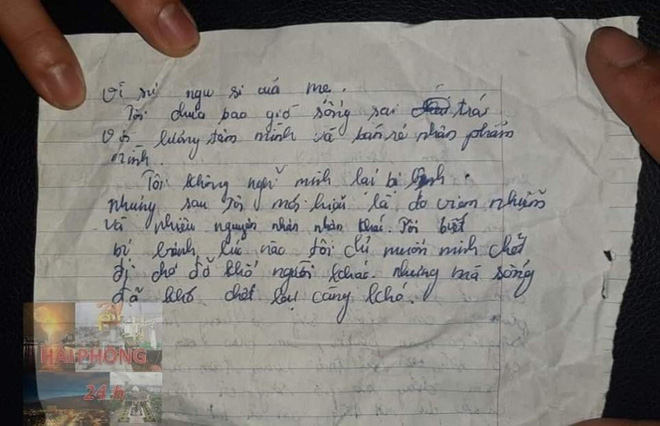 Vì sự ngu si của mẹ.
Tôi chưa bao giờ sống sai trái
với lương tâm mình và bán rẻ nhân phẩm
mình.
Tôi không nghĩ mình lại bị bệnh.
nhưng sau tôi mới là do viêm nhiễm
vì nhiều nguyên nhân nhân khác. Tôi biết
bị bệnh lúc nào tôi chỉ muốn mình chết
đi cho đỡ khổ người khác. nhưng mà sống
đã khó chết lại càng khó.
24
HẢI PHÒNG
24h